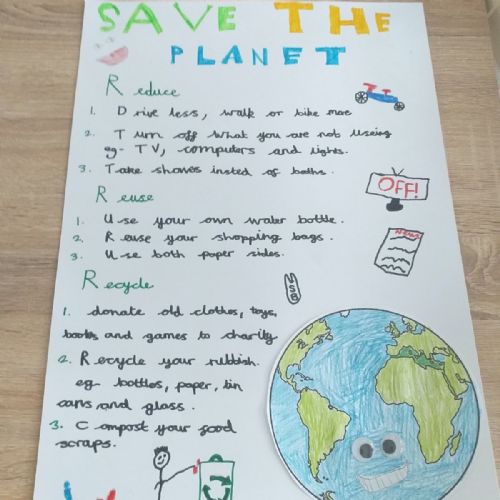 SAVE THE
PLANET
Reduce
1. Drive less, walk or bike more
2. Turn off what you are not useing
eg- TV, computers and lights.
3. Take showes insted of baths.
OFF!
Reuse
1. Use your own water bottle.
2. Reuse your shopping bags.
3. Use both paper sides.
NEWS
Recycle
1. donate old clothes, toys,
books and games to charity
2. Recycle your rubbish.
eg bottles, paper, tin
cans, and glass.
3. Compost your food
scraps.